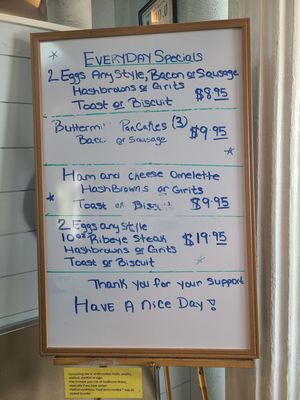 EVERYDAY Specials
2 Eggs Any Style, Bacon or Sausage
Hashbrowns or Grits
Toast or Biscuit $8.95
Buttermi Pancakes (3)
Baco or Sausage $9.95
Ham and cheese Omelette
HashBrowns or Grits
Toast or Biscuit $9.95
2 Eggs any style
10oz Ribeye Steak $19.95
Hashbrowns or Grits
Toast or Biscuit
Thank you for your Support
HAVE A nice Day!